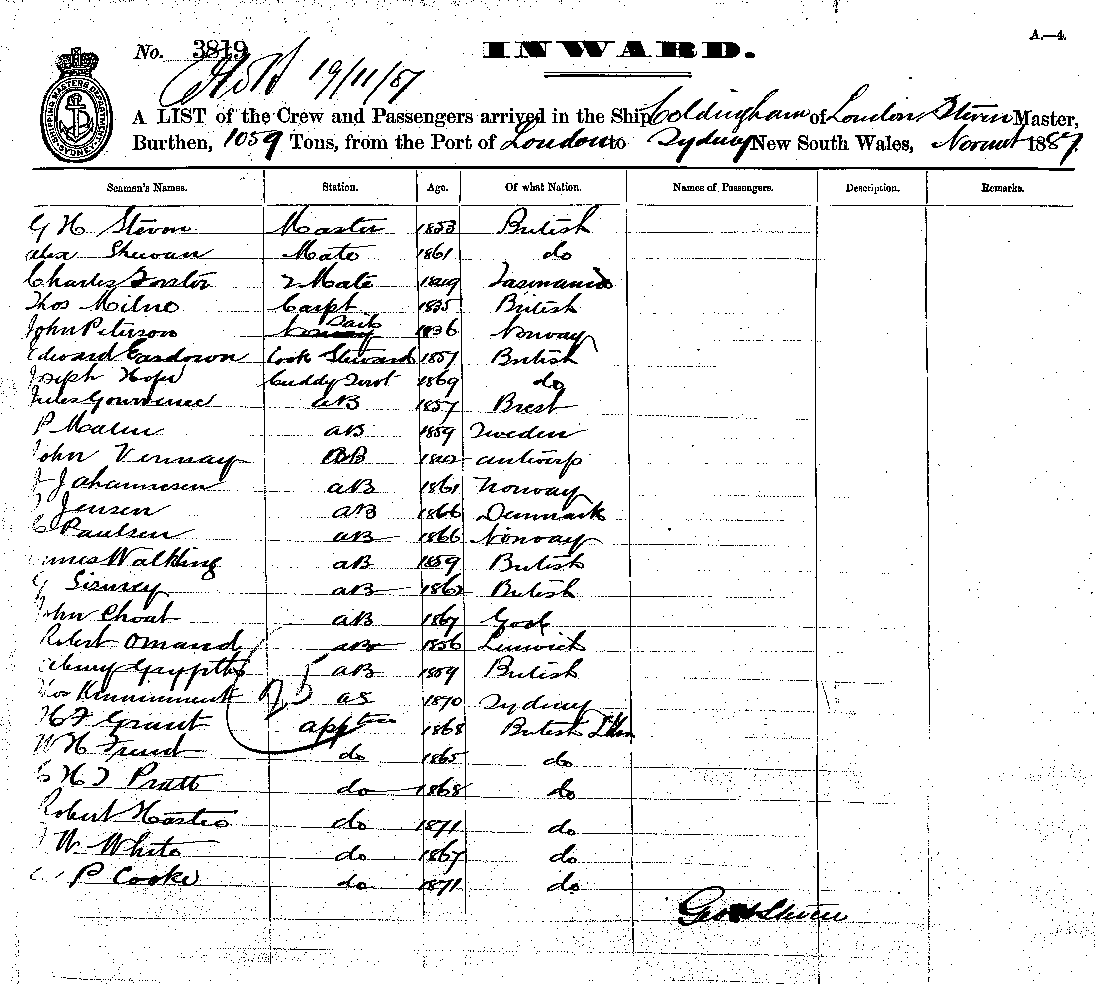 A.—4.
No. 3819 INWARD.
19/11/87
A LIST of the Crew and Passengers arrived in the Ship Coldingham of London, Steven Master,
Burthen, 1059 Tons, from the Port of London to Sydney New South Wales, 1887.
Seamen's Names. Station. Age. Of what Nation. Names of Passengers. Description. Remarks.
G H Steven Master 1853 British
Alex Shewan Mate 1861 do
Charles Forster 2 Mate Tasmania
Thos Milne Carpt 1835 British
John Peterson Norway Sails 1836 Norway
Edward Cook Steward 1857 British
Joseph Hope Cuddy 1869 do
Jules AB 1857 Brest
P Malm AB 1859 Sweden
John AB Antwerp
J Johannesen AB 1861 Norway
Jensen AB 1866 Denmark
C Paulsen AB 1866 Norway
James Walkling AB 1859 British
G AB 1862 British
John Choat AB 1867
Robert Omand AB 1856 Lerwick
Henry Gryffths AB 1859 British
Thos Kinninment 25 AS 1870 Sydney
H F Grant app 1868 British
W H do 1865 do
C H T Pratt do 1868 do
Robert do 1871 do
W White do 1867 do
P Cooke do 1871 do
Geo H Steven